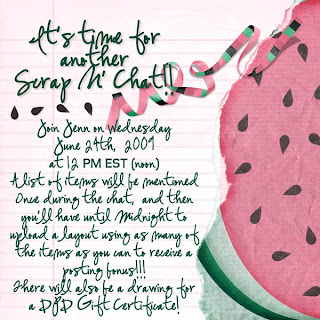 It's time for
another
Scrap N' Chat!!
Join Jenn on Wednesday
June 24th, 2009
at 12 PM EST (noon)
A list of items will be mentioned
Once during the chat, and then
you'll have until Midnight to
upload a layout using as many of
the items as you can to receive a
posting bonus!!!
There will also be a drawing for
a DJD Gift Certificate!